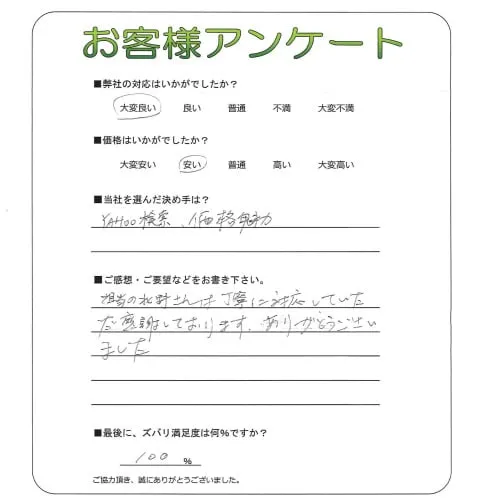 お客様アンケート
■弊社の対応はいかがでしたか？
大変良い 良い 普通 不満 大変不満
■価格はいかがでしたか？
大変安い 安い 普通 高い 大変高い
■当社を選んだ決め手は？
YAHOO検索、価格魅力
■ご感想・ご要望などをお書き下さい。
担当の北野さんは丁寧に対応していた
だ感謝しております。ありがとうござい
ました
■最後に、ズバリ満足度は何％ですか？
100 ％
ご協力頂き、誠にありがとうございました。